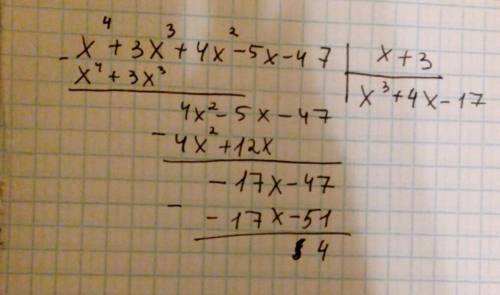 - x⁴ + 3x³ + 4x² - 5x - 47 | x + 3
x⁴ + 3x³ | x³ + 4x - 17
4x² - 5x - 47
- 4x² + 12x
- 17x - 47
- - 17x - 51
4